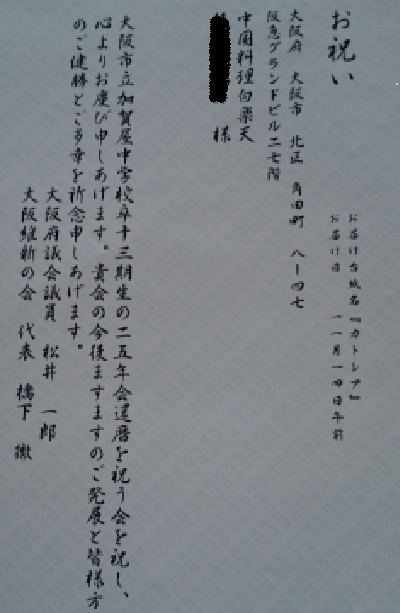 お祝い
お届け台紙名『カトレア』
お届け日　一一月一四日午前
大阪府　大阪市　北区　角田町　八ー四七
阪急グランドビル二七階
中国料理白楽天
様
大阪市立加賀屋中学校卒十三期生の二五年会還暦を祝う会を祝し、
心よりお慶び申しあげます。貴会の今後ますますのご発展と皆様方
のご健勝とご多幸を祈念申しあげます。
大阪府議会議員　松井　一郎
大阪維新の会　代表　橋下　徹